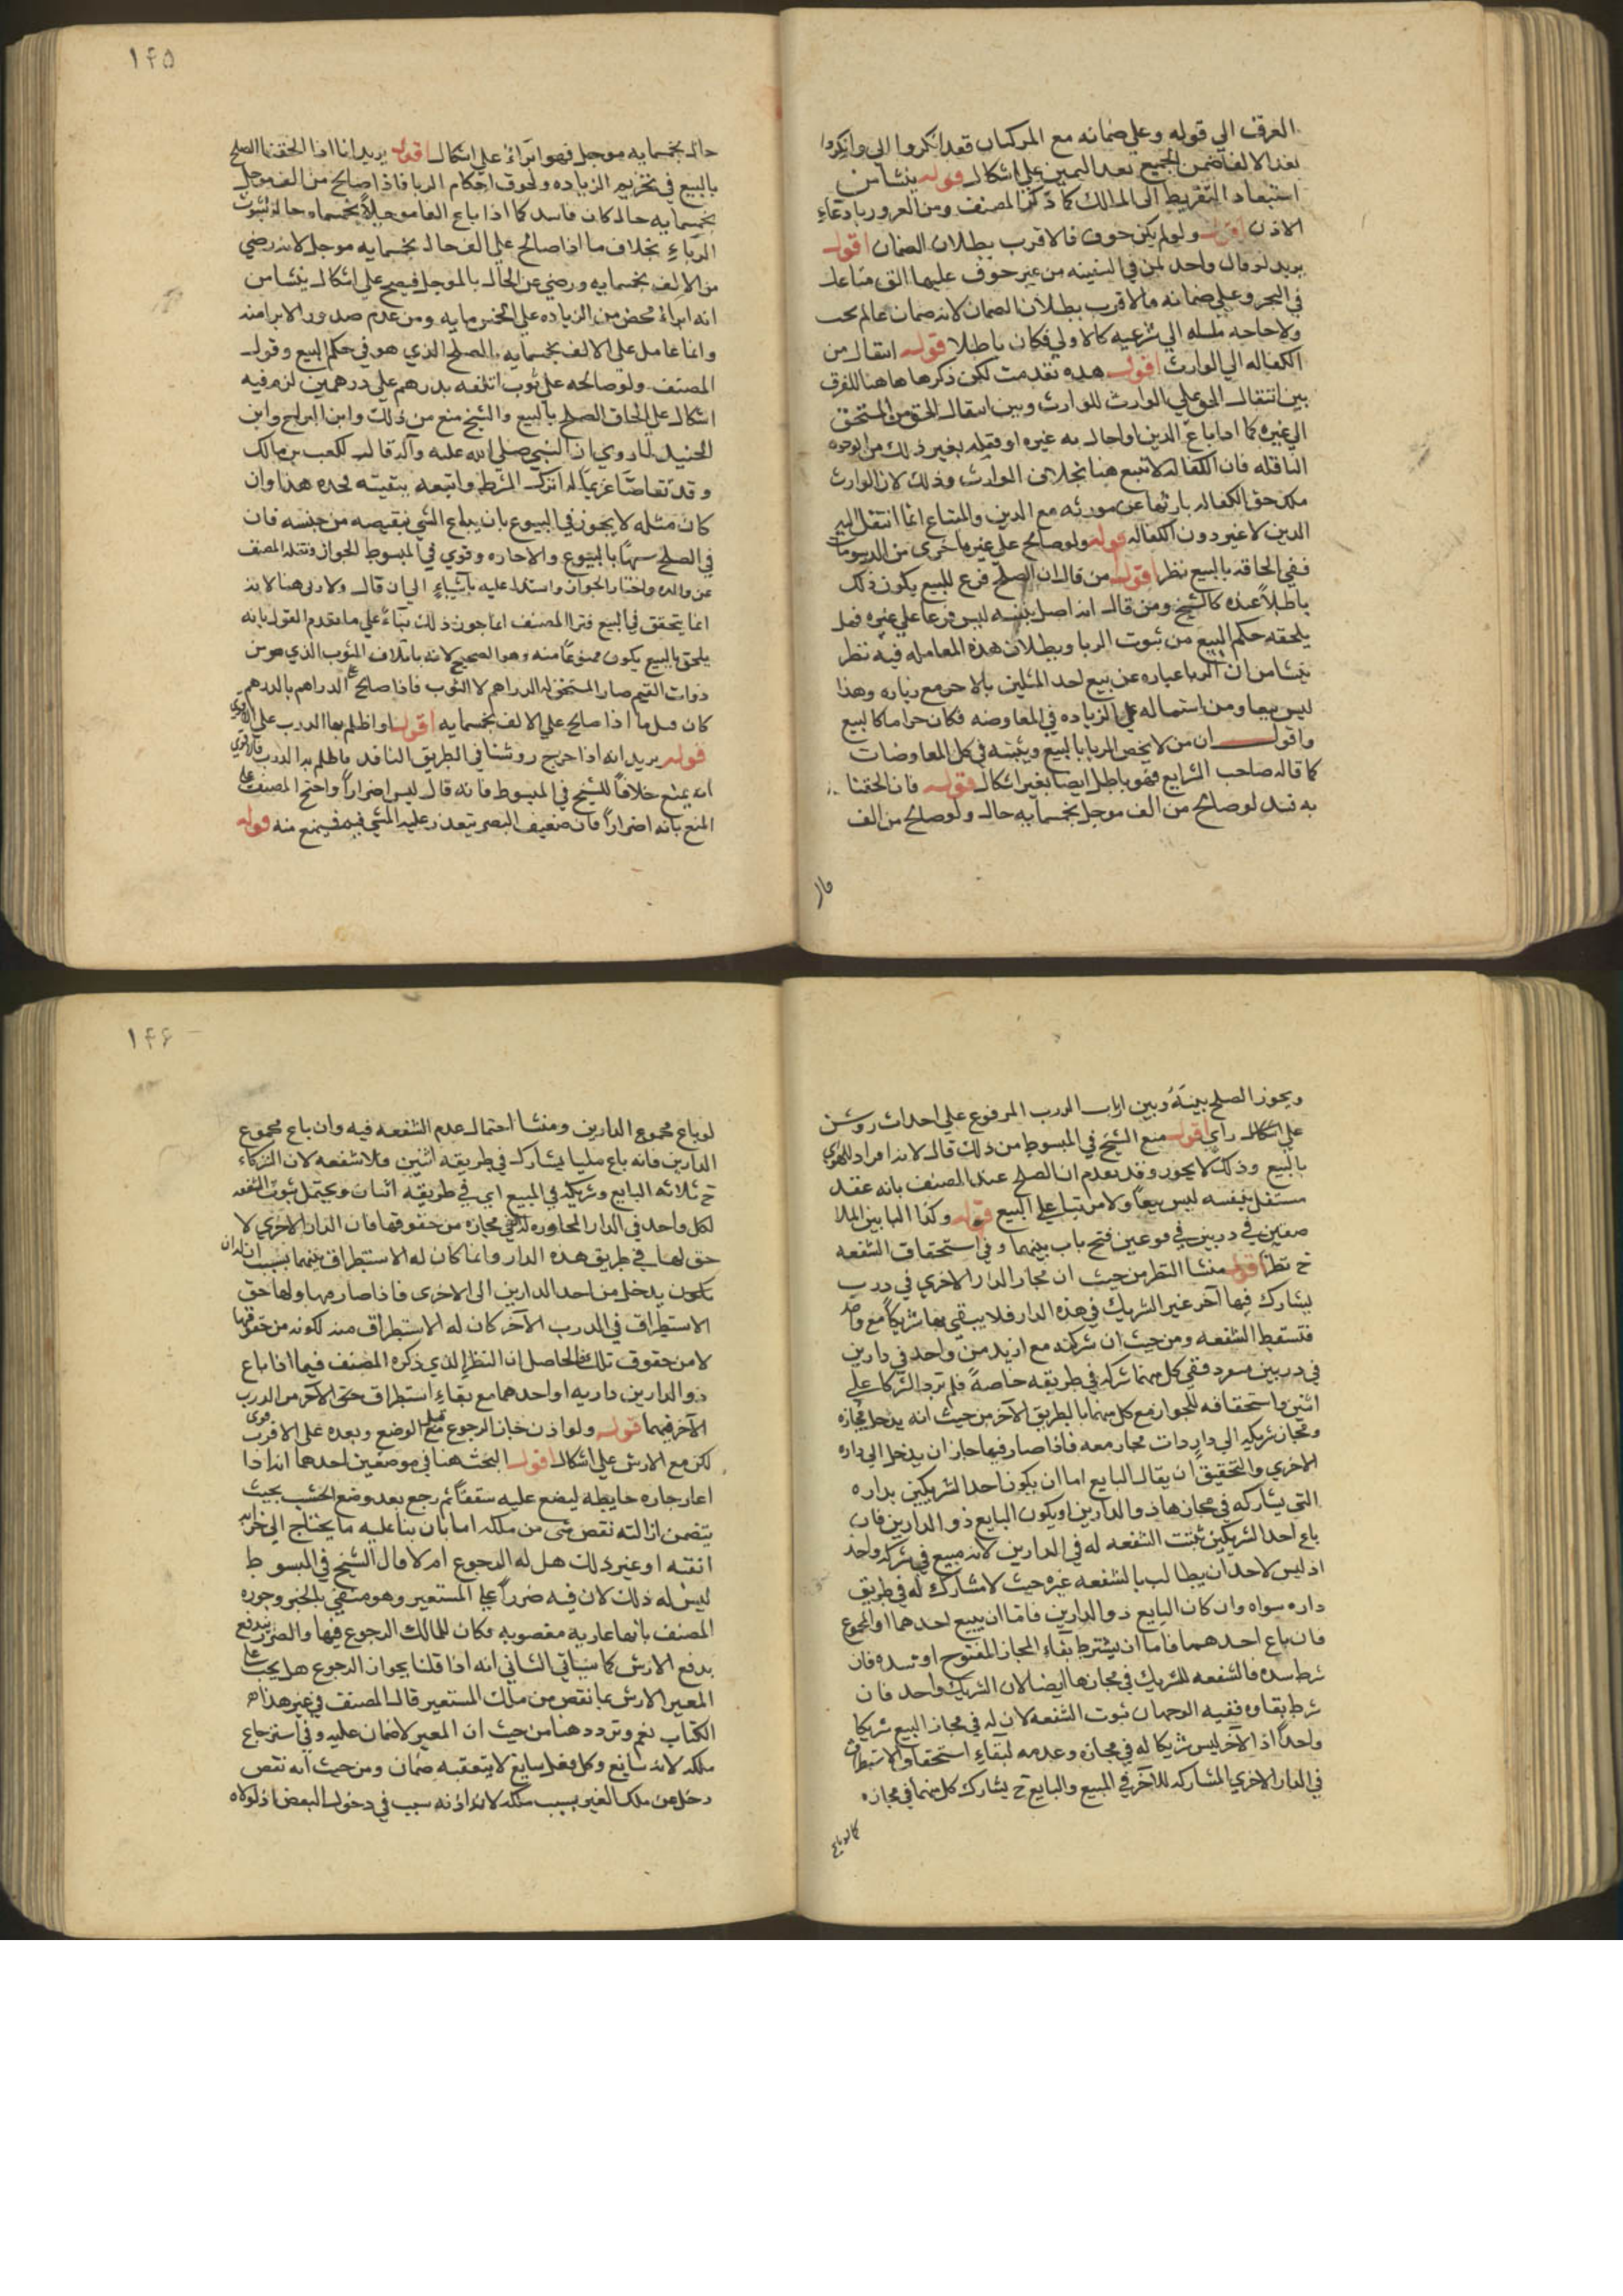 الغرق الي قوله وعلي ضمانه مع الركبان فقد انكروا الي وانكروا
بعد الالقا ضمن الجميع بعد اليمين علي اشكال قوله ينشا من
استبعاد التفريط الي المالك كما ذكر المصنف ومن الغرور بادعاء
الاذن قوله ولو لم يكن خوف فالاقرب بطلان الضمان اقول
يريد لو قال واحد لمن في السفينه من غير خوف عليها الق متاعك
في البحر وعلي ضمانه فالاقرب بطلان الضمان لانه ضمان ما لم يجب
ولا حاجه الي شرعيه كالاولي فكان باطلا قوله انتقال من
الكفاله الي الوارث اقول هذه تقدمت لكن ذكرها هاهنا للفرق
بين انتقال الحق علي الوارث للوارث وبين انتقال الحق من المستحق
الي غيره كما اذا باع الدين او احال به غيره او نقله بغير ذلك من الوجوه
الناقله فان الكفاله لا تتبع هنا بخلاف الوارث وذلك لان الوارث
ملك حق الكفاله بارثها عن مورثه مع الدين والمبتاع انما انتقل اليه
الدين لا غير دون الكفاله قوله ولو صالح علي عين باخري من الربويات
ففي الحاقه بالبيع نظر اقول من قال ان الصلح فرع للبيع يكون ذلك
باطلا عنده كالشيخ ومن قال انه اصل بنفسه ليس فرعا علي غيره فهل
يلحقه حكم البيع من ثبوت الربا وبطلان هذه المعامله فيه نظر
ينشا من ان الربا عباره عن بيع احد المثلين بالاخر مع زياده وهذا
ليس بيعا ومن اشتماله علي الزياده في المعاوضه فكان حراما كالبيع
واقول ان من لا يخص الربا بالبيع ويثبته في كل المعاوضات
كما قاله صاحب الشرايع فهو باطل ايضا بغير اشكال قوله فان الحقنا
به فسد لو صالح من الف موجل بخمسمايه حال ولو صالح من الف
حال بخمسمايه موجل فهو ابراء علي اشكال اقول يريد انا اذا الحقنا الصلح
بالبيع في تحريم الزياده ولحوق احكام الربا فاذا صالح من الف موجل
بخمسمايه حال كان فاسدا كما اذا باع الفا موجلا بخمسمايه حاله لثبوت
الرباء بخلاف ما اذا صالح علي الف حال بخمسمايه موجل لانه رضي
من الالف بخمسمايه ورضي عن الحال بالموجل فيصح علي اشكال ينشا من
انه ابراء محض من الزياده علي الخمس مايه ومن عدم صدور الابرا منه
وانما عامل علي الالف بخمسمايه الصلح الذي هو في حكم البيع وقول
المصنف ولو صالحه علي ثوب اتلفه بدرهم علي درهمين لزم فيه
اشكال علي الحاق الصلح بالبيع والشيخ منع من ذلك وابن البراج وابن
الجنيد لما روي ان النبي صلي الله عليه وآله قال لكعب بن مالك
وقد تقاضا غريما له اترك الشرط واتبعه ببقيته فحده هذا وان
كان مثله لا يجوز في البيوع بان يباع الشي بنقيصه من جنسه فان
في الصلح سهما بالبيوع والاجاره وقوي في المبسوط الجواز ونقله المصنف
عن والده واختار الجواز واستدل عليه باشياء الي ان قال ولا ربي هنا لانه
انما يتحقق في البيع فترا المصنف انما جوز ذلك بناء علي ما تقدم القول بانه
يلحق بالبيع يكون ممنوعا منه وهو الصحيح لانه باتلاف الثوب الذي هو من
ذوات القيم صار المستحق له الدراهم لا الثوب فاذا صالح علي الدراهم بالدرهم
كان مثل ما اذا صالح علي الالف بخمسمايه اقول او اظلم بها الدرب علي الاقوي
قوله يريد انه اذا خرج روشنا في الطريق النافذ فاظلم به الدرب فالاقوي
انه يمنع خلافا للشيخ في المبسوط فانه قال ليس اضرارا واحتج المصنف علي
المنع بانه اضرارا فان ضعيف البصر يتعذر عليه المشي فيه فيمنع منه قوله
ويجوز الصلح بينه وبين ارباب الدرب المرفوع علي احداث روشن
علي اشكال رأي اقول منع الشيخ في المبسوط من ذلك قال لانه افراد للهوي
بالبيع وذلك لا يجوز وقد تقدم ان الصلح عند المصنف بانه عقد
مستقل بنفسه ليس بيعا ولا مرتبا علي البيع قوله وكذا البابين المتلا
صقين في دربين مرفوعين فتح باب بينهما وفي استحقاق الشفعه
ح نظر اقول منشا النظر من حيث ان مجاز الدار الاخري في درب
يشارك فيها آخر غير الشريك في هذه الدار فلا يبقي بها شريكا مع واحد
فتسقط الشفعه ومن حيث ان شركته مع ازيد من واحد في دارين
في دربين مفرد ففي كل منهما شركه في طريقه خاصة فلم ترد الشركا علي
اثنين واستحقاقه للجواز مع كل منهما بالطريق الآخر من حيث انه يدخل مجازه
ومجاز شريكه الي دار ذات مجاز معه فاذا صار فيها جاز ان يدخل الي داره
الاخري والتحقيق ان يقال البايع اما ان يكون احد الشريكين بداره
التي يشاركه في مجازها ذو الدارين او يكون البايع ذو الدارين فان
باع احد الشريكين ثبتت الشفعه له في الدارين لانه مبيع في شركه واحد
اذ ليس لاحد ان يطالب بالشفعه غيره حيث لا مشارك له في طريق
داره سواه وان كان البايع ذو الدارين فاما ان يبيع احدهما او المجموع
فان باع احدهما فاما ان يشترط بقاء المجاز المفتوح او تسده فان
شرط سده فالشفعه للشريك في مجازها ايضا لان الشريك واحد فان
شرط بقاوه ففيه الوجهان ثبوت الشفعه لان له في مجاز البيع شريكا
واحدا اذ الآخر ليس شريكا له في مجازه وعدمه لبقاء استحقاق الاستطراق
في الدار الاخري المشاركه للآخر في المبيع والبايع ح يشارك كل منهما في مجازه
كما لو باع
لو باع مجموع الدارين ومنشا احتمال عدم الشفعه فيه وان باع مجموع
الدارين فانه باع ملكا يشارك في طريقه اثنين فلا شفعه لان الشركاء
ح ثلاثه البايع وشريكه في المبيع اي في طريقه اثنان ويحتمل ثبوت الشفعه
لكل واحد في الدار المجاوره له التي مجازه من حقوقها فان الدار الاخري لا
حق لها في طريق هذه الدار وانما كان له الاستطراق بينهما بسبب ان له ان
يكون يدخل من احد الدارين الي الاخري فاذا صار بها ولها حق
الاستطراق في الدرب الآخر كان له الاستطراق منه لكونه من حقوقها
لا من حقوق تلك فالحاصل ان النظر الذي ذكره المصنف فيما اذا باع
ذو الدارين داريه او احدهما مع بقاء استطراق حق الآخر من الدرب
الآخر فيهما قوله ولو اذن جاز الرجوع قبل الوضع وبعده علي الاقرب
لكن مع الارش علي اشكال اقول البحث هنا في موضعين احدهما انه اذا
اعار جاره حايطه ليضع عليه سقفا ثم رجع بعد وضع الخشب بحيث
يتضمن ازالته نقص شي من ملكه اما بان بنا عليه ما يحتاج الي خرابه
او غير ذلك هل له الرجوع ام لا قال الشيخ في المبسوط
ليس له ذلك لان فيه ضررا علي المستعير وهو منفي بالخبر وجوزه
المصنف بانها عاريه مغصوبه فكان للمالك الرجوع فيها والضرر يندفع
بدفع الارش كما سياتي الثاني انه اذا قلنا بجواز الرجوع هل يجب علي
المعير الارش بما نقص من ملك المستعير قال المصنف في غير هذا
الكتاب نعم وتردد هنا من حيث ان المعير لا ضمان عليه وفي استرجاع
ملكه لانه سايغ وكل فعل سايغ لا يتعقبه ضمان ومن حيث انه نقص
دخل من ملك الغير بسبب ملكه لانه اذنه سبب في دخول البعض اذ لولاه